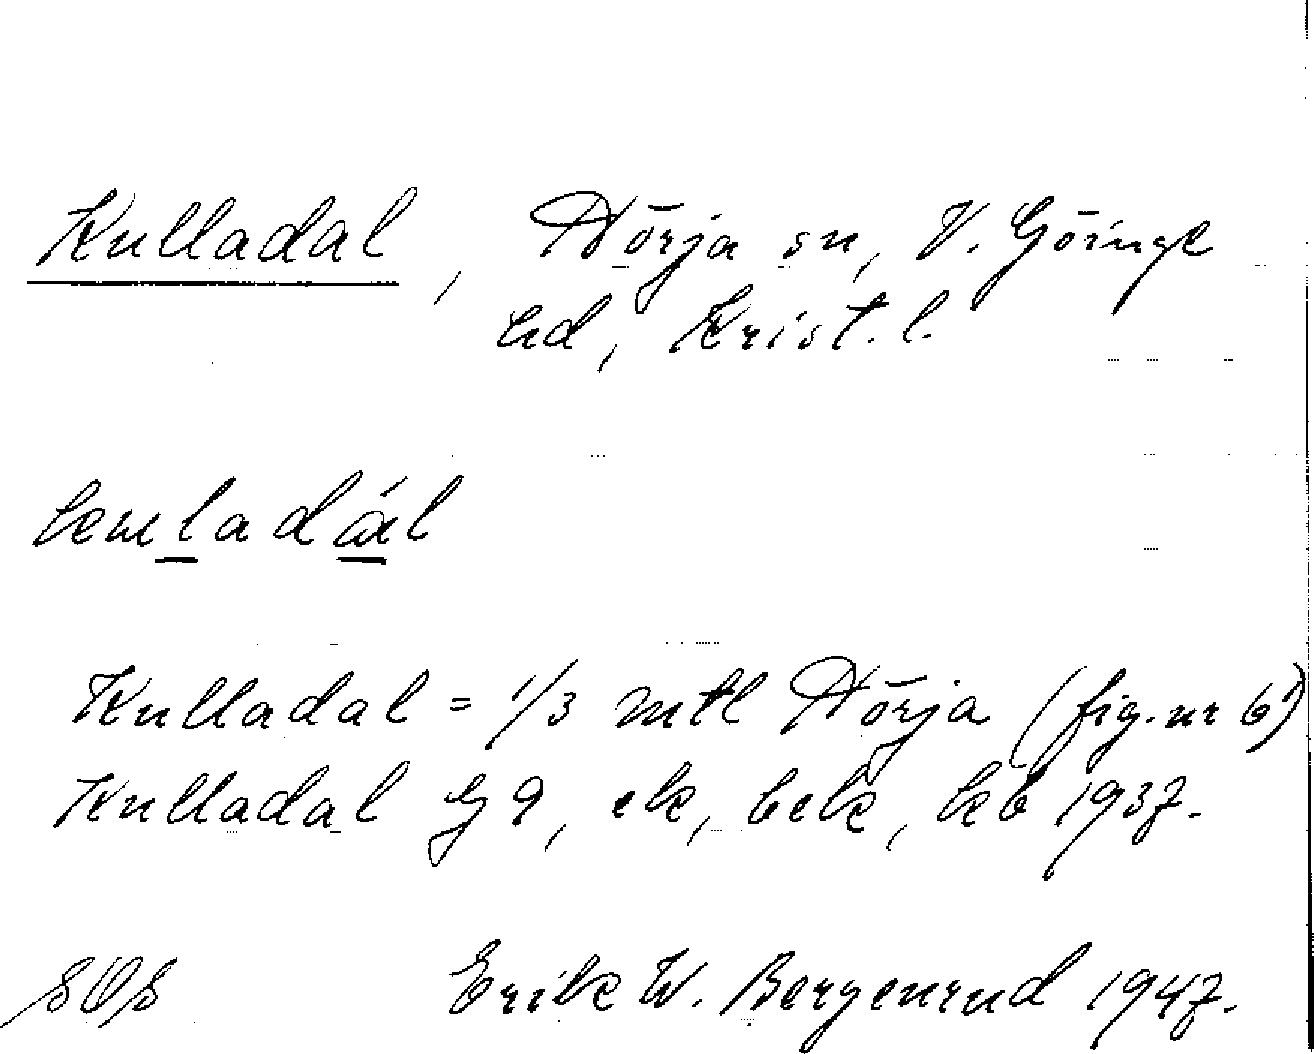 Kulladal, Nörja sn, V. Göinge
hd, Krist. l.
Kulladal = 1/3 mtl Nörja (fig. nr 6¹)
Kulladal G 9, ek, bek, kb 1937.
SOS Erik W. Bergenrud 1947.